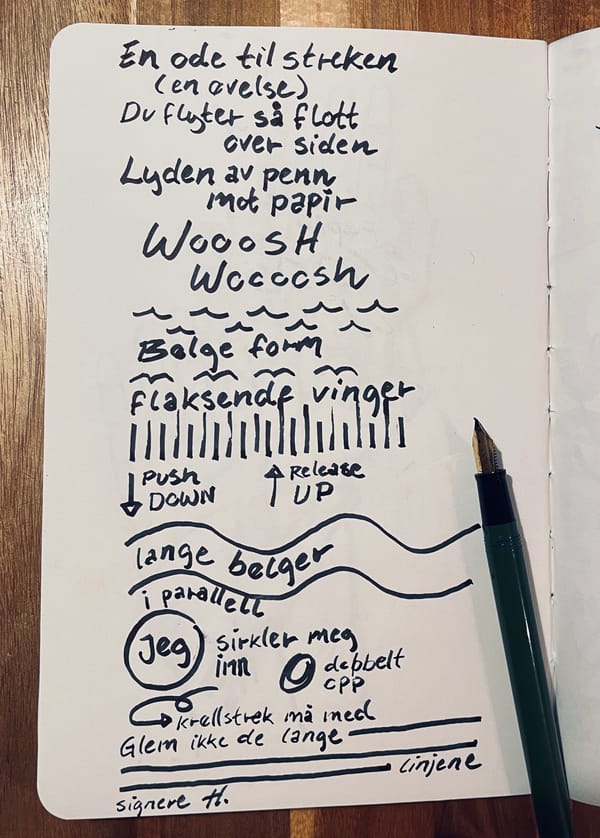 En ode til streken
(en øvelse)
Du flyter så flott
over siden
Lyden av penn
mot papir
WOOOSH
Woooosh
Bølge form
flaksende vinger
PUSH
DOWN
Release
UP
lange bølger
i parallell
Jeg
sirkler meg
inn
dobbelt
opp
krøllstrek må med
Glem ikke de lange
linjene
signere H.